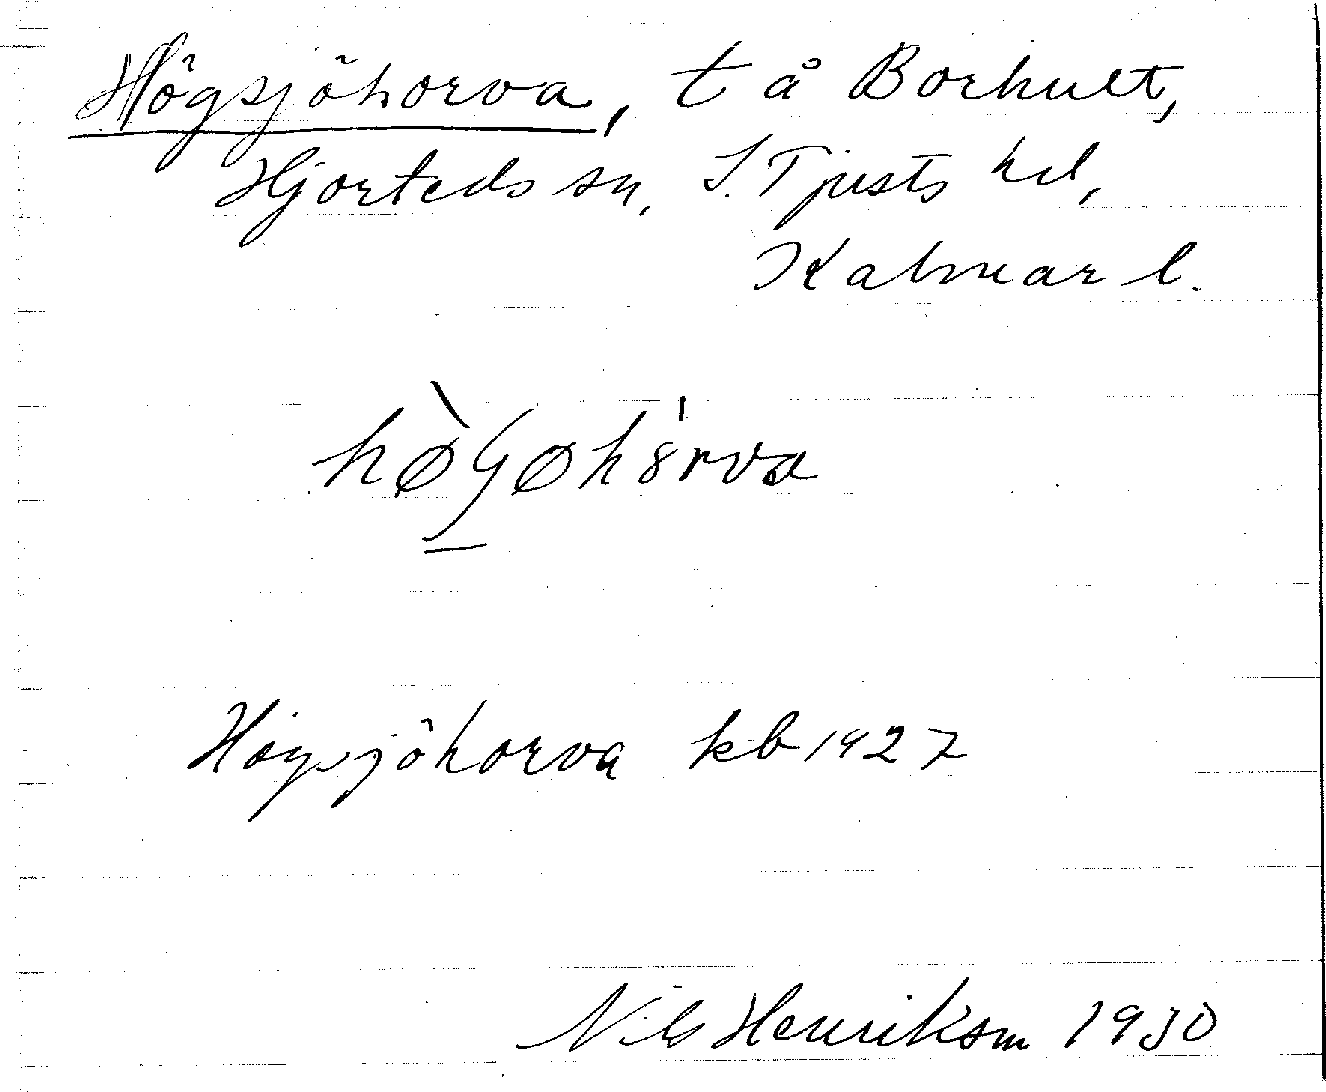 Högsjöhorva, t å Borhult,
Hjorteds sn, S. Tjusts hd,
Kalmar l.
hø̀ʃøhȣ̍rva
Högsjöhorva kb 1927
Nils Henrikson 1930